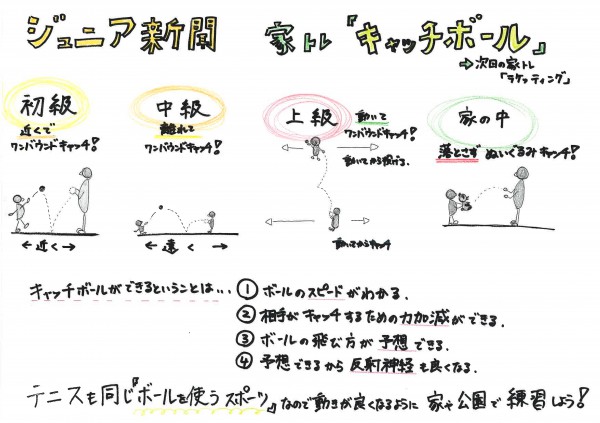 ジュニア新聞　家トレ『キャッチボール』
→次回の家トレ
「ラケッティング」
初級
近くで
ワンバウンドキャッチ!
←近く→
中級
離れて
ワンバウンドキャッチ!
←遠く→
上級
動いて
ワンバウンドキャッチ!
動いてから投げる.
動いてからキャッチ
家の中
落とさず ぬいぐるみキャッチ!
キャッチボールができるということは… ① ボールのスピードがわかる.
② 相手がキャッチするための力加減ができる.
③ ボールの飛び方が予想できる.
④ 予想できるから反射神経も良くなる.
テニスも同じ『ボールを使うスポーツ』なので動きが良くなるように 家や公園で練習しよう!